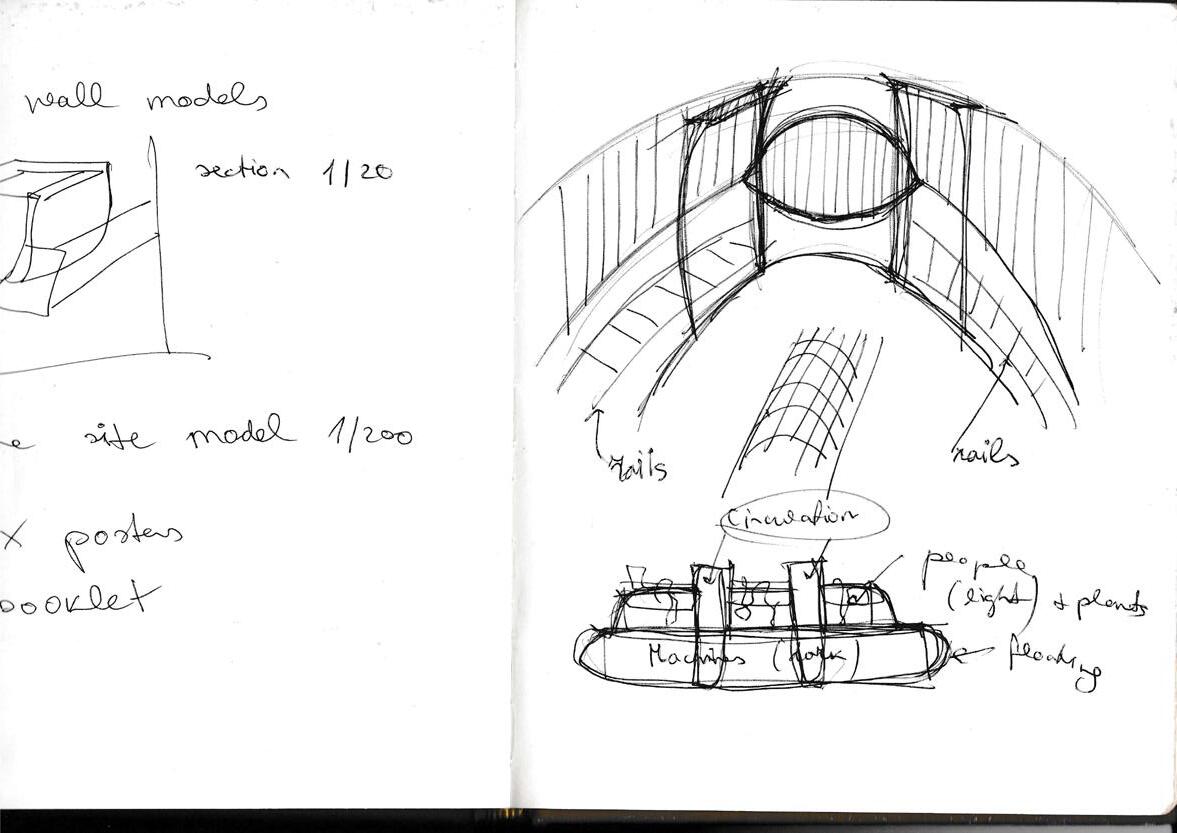 wall models
section 1/20
site model 1/200
x posters
booklet
rails
rails
Circulation
people
(light) + plants
Machines (dark)
floating